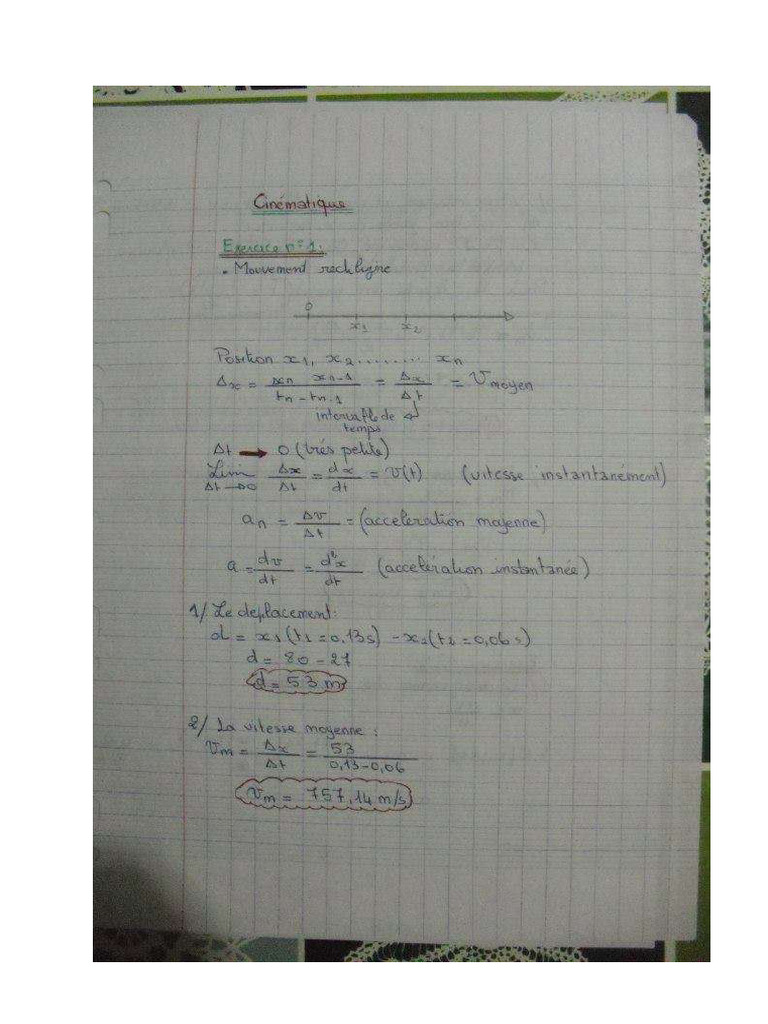 Cinématique
Exercice n° 1:
. Mouvement rectiligne
0
x1 x2
Position x1, x2 ........ xn
Δx = xn - xn-1 / tn - tn-1 = Δx / Δt = Vmoyen
intervalle de
temps
Δt → 0 (trés petite)
Lim Δt→0 Δx/Δt = dx/dt = v(t) (vitesse instantanément)
an = Δv/Δt = (acceleration moyenne)
a = dv/dt = d²x/dt (accelération instantanée)
1/ Le deplacement:
d = x1(t1 = 0,13s) - x2(t2 = 0,06s)
d = 80 - 27
d = 53 m
2/ La vitesse moyenne :
Vm = Δx/Δt = 53 / 0,13-0,06
Vm = 757,14 m/s